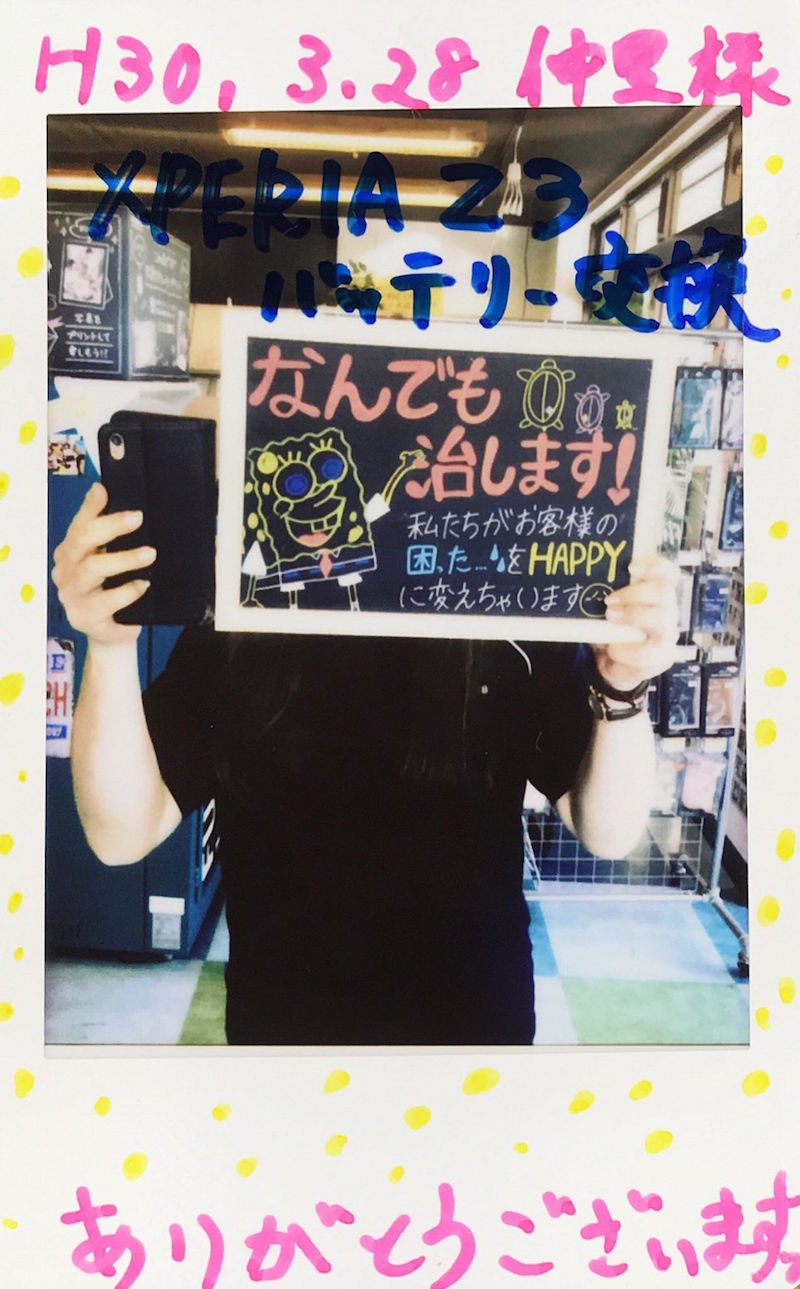 H30, 3.28 仲里様
XPERIA Z3
バッテリー交換
写真を
プリントして
楽しもう!!
なんでも
治します!
私たちがお客様の
困った...を HAPPY
に変えちゃいます
ありがとうございます。